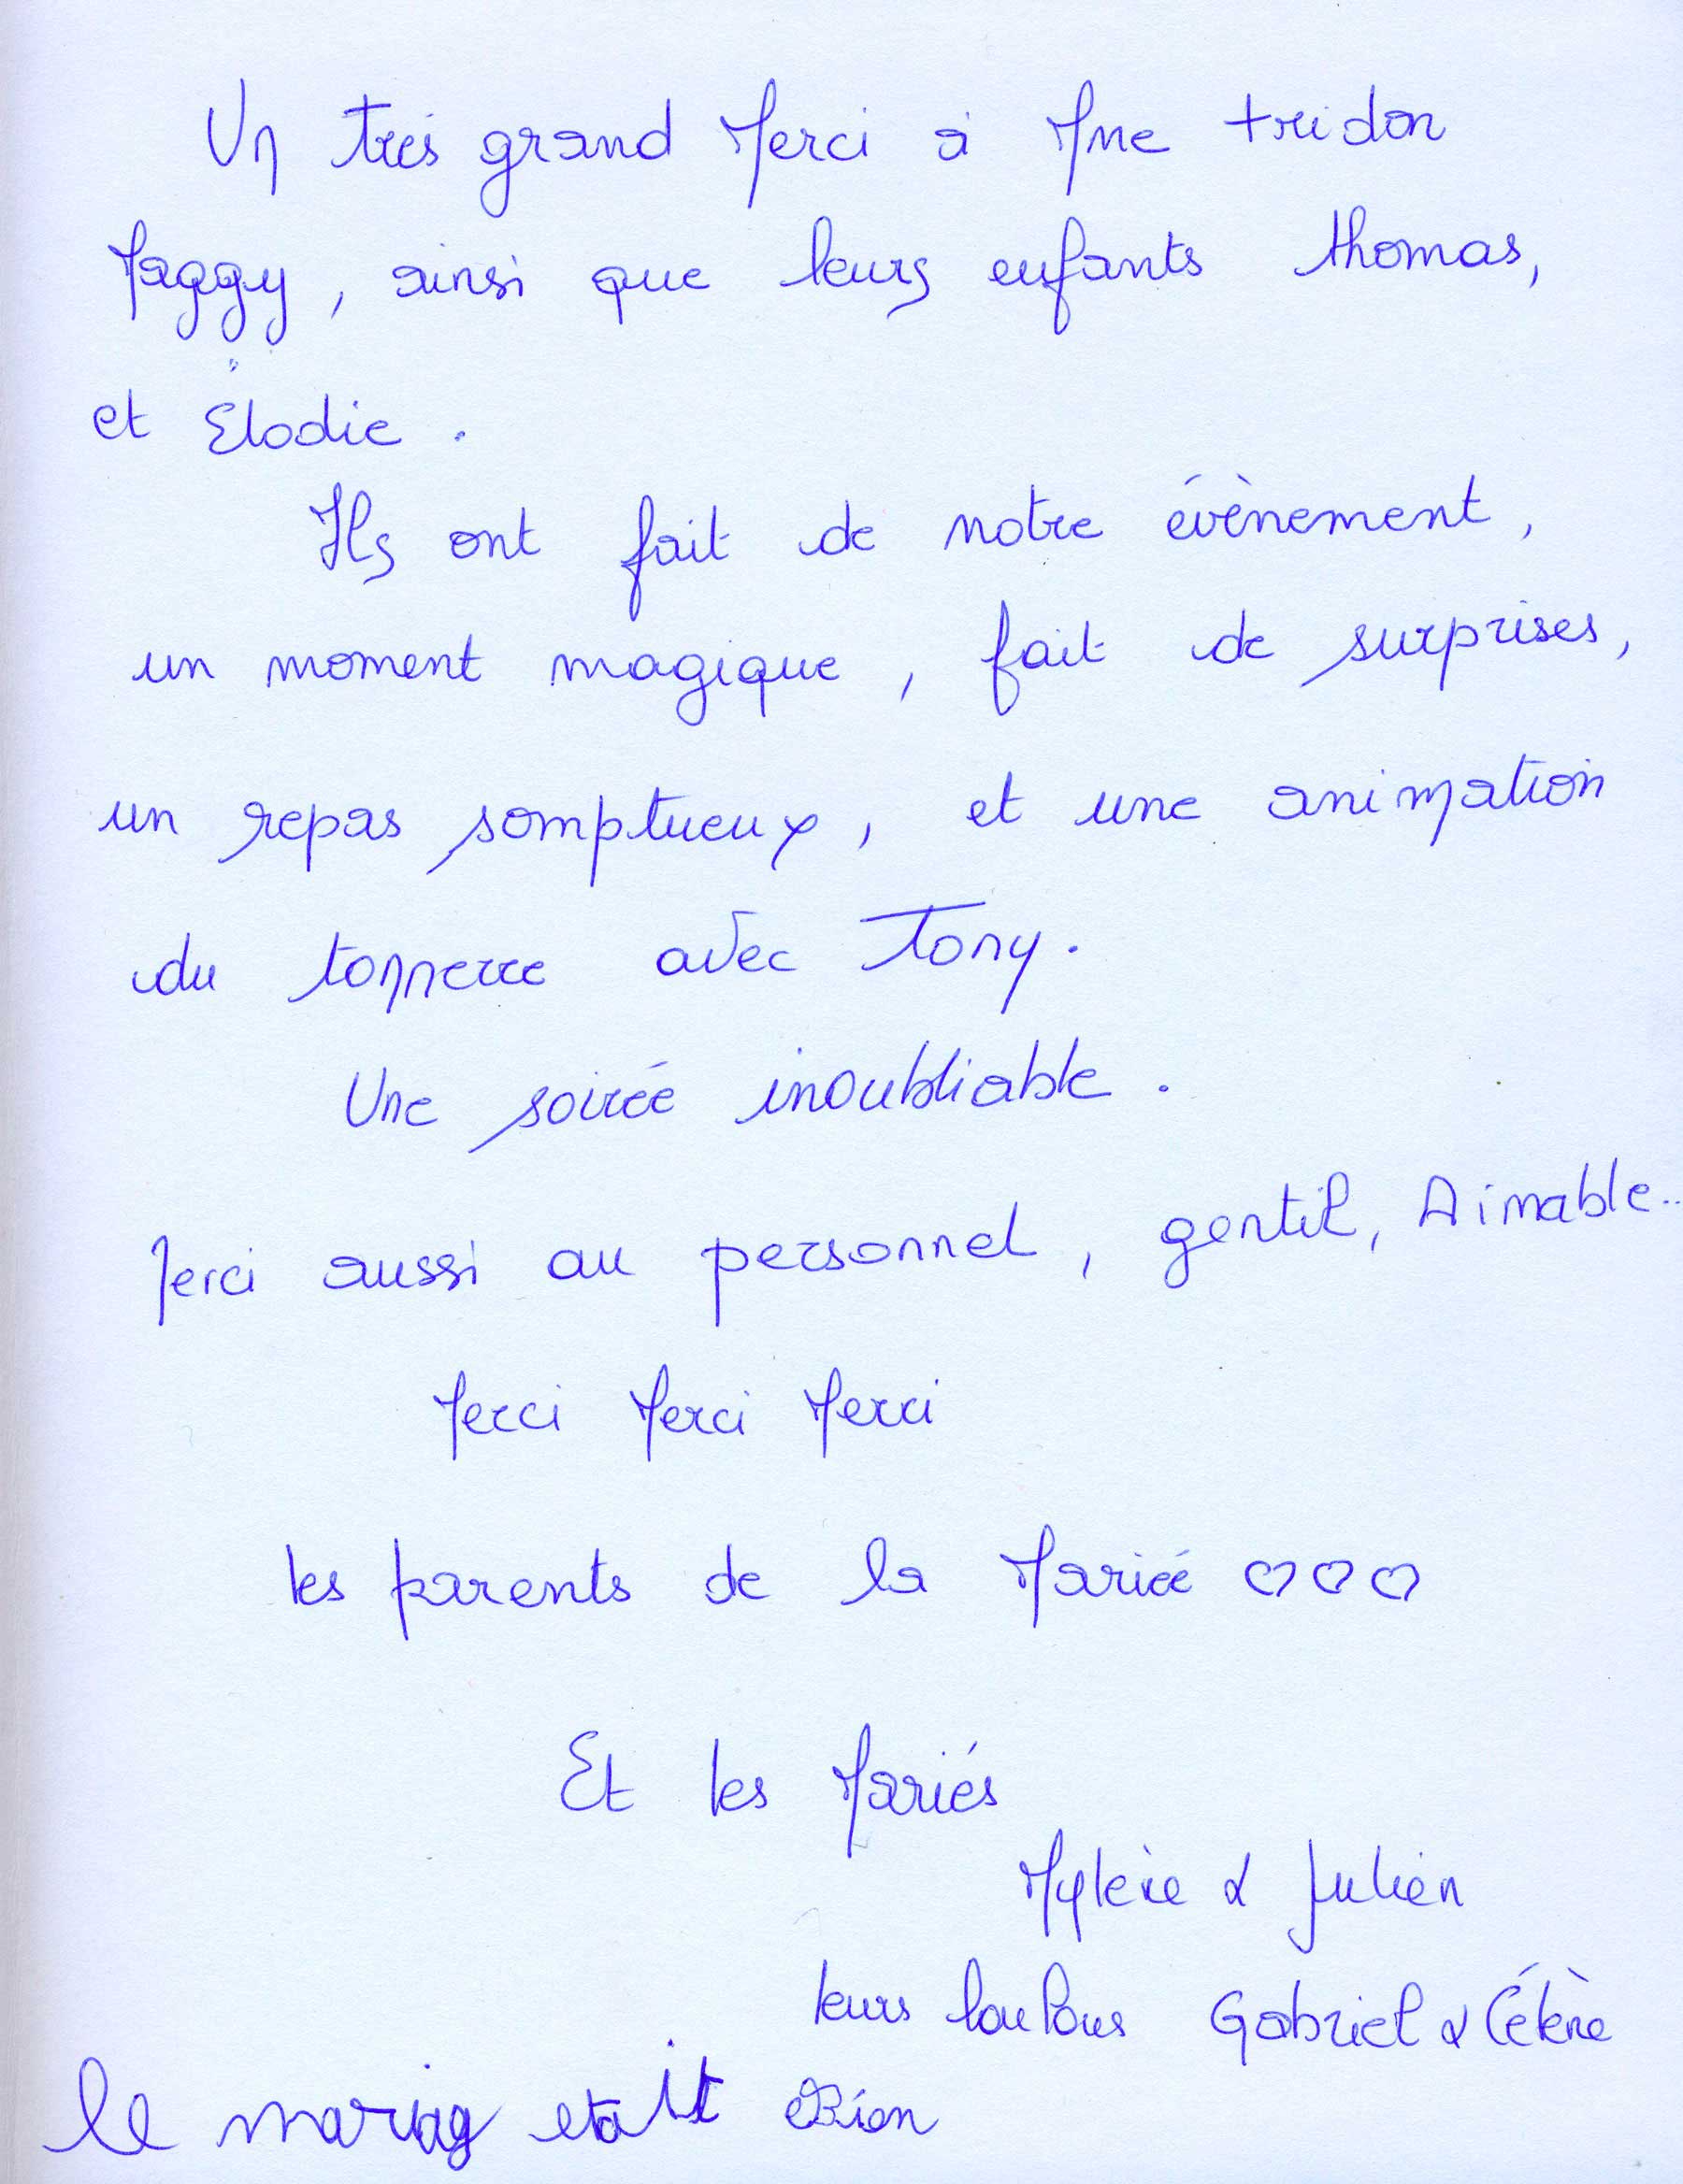 Un très grand Merci à Mme tridon
Maggy, ainsi que leurs enfants thomas,
et Elodie.
Ils ont fait de notre évènement,
un moment magique, fait de surprises,
un repas somptueux, et une animation
du tonnerre avec Tony.
Une soirée inoubliable.
Merci aussi au personnel, gentil, Aimable..
Merci Merci Merci
les parents de la Mariée ♡♡♡
Et les Mariés
Mylène & Julien
leurs loulous Gabriel & Célène
le mariag etait Bien